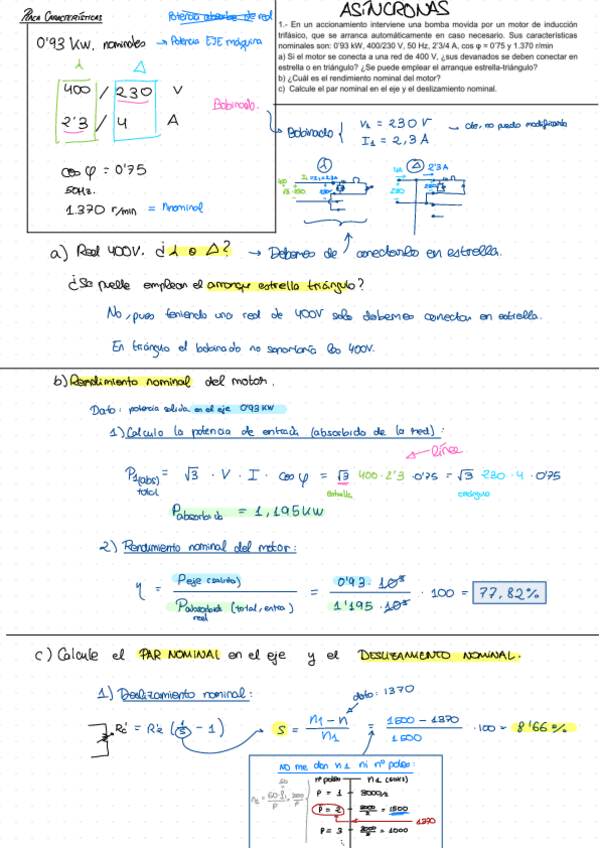 PLACA CARACTERÍSTICAS
Potencia absorbe de red
ASÍNCRONAS
0'93 Kw. nominales → Potencia EJE máquina
λ Δ
400 / 230 V
2'3 / 4 A
Bobinado.
cos φ = 0'75
50Hz.
1.370 r/min = nnominal
1.- En un accionamiento interviene una bomba movida por un motor de inducción
trifásico, que se arranca automáticamente en caso necesario. Sus características
nominales son: 0'93 kW, 400/230 V, 50 Hz, 2'3/4 A, cos φ = 0'75 y 1.370 r/min
a) Si el motor se conecta a una red de 400 V, ¿sus devanados se deben conectar en
estrella o en triángulo? ¿Se puede emplear el arranque estrella-triángulo?
b) ¿Cuál es el rendimiento nominal del motor?
c) Calcule el par nominal en el eje y el deslizamiento nominal.
→ Bobinado { V1 = 230 V → cte, no puedo modificarla
I1 = 2,3 A
a) Red 400V. ¿λ o Δ? → Debemos de conectarlo en estrella.
¿Se puede emplear el arranque estrella triángulo?
No, pues teniendo una red de 400V solo debemos conectar en estrella.
En triángulo el bobinado no soportaría los 400V.
b) Rendimiento nominal del motor.
Dato: potencia salida en el eje 0'93 KW
1) Calculo la potencia de entrada (absorbida de la red):
línea
P1(abs) = √3 · V · I · cos φ = √3 400 · 2'3 · 0'75 = √3 230 · 4 · 0'75
total
estrella triángulo
Pabsorbida = 1,195 KW
2) Rendimiento nominal del motor:
η = Peje (salida) / Pabsorbida (total, entra) = 0'93 · 10³ / 1'195 · 10³ · 100 = 77,82%
red
c) Calcule el PAR NOMINAL en el eje y el DESLIZAMIENTO NOMINAL.
1) Deslizamiento nominal:
dato: 1370
Rc' = R2' (1/S - 1) → S = n1 - n / n1 = 1500 - 1370 / 1500 · 100 = 8'66%
NO me dan n1 ni nº polos:
nº polos n1 (50Hz)
P = 1 3000/1
P = 2 3000/2 = 1500
1370
P = 3 3000/3 = 1000